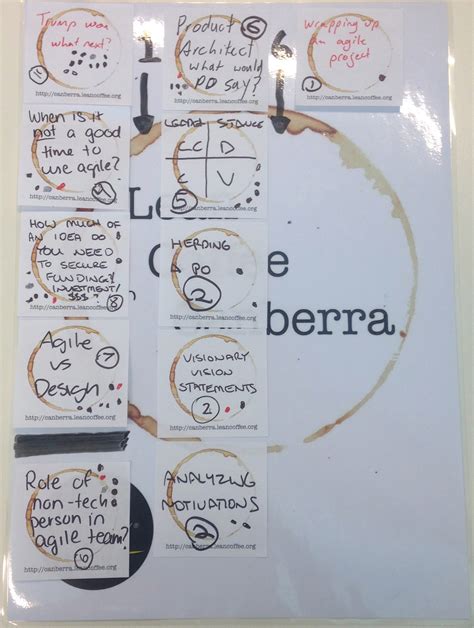 Trump won
what next?
11
http://canberra.leancoffee.org
When is it
not a good
time to
use agile?
9
http://canberra.leancoffee.org
HOW MUCH OF
AN IDEA DO
YOU NEED
TO SECURE
FUNDING?
INVESTMENT/
$$$?
8
http://canberra.leancoffee.org
Agile
vs
Design
7
http://canberra.leancoffee.org
Role of
non-tech
person in
agile team?
6
http://canberra.leancoffee.org
1
Product
6
Architect
what would
PO say?
http://canberra.leancoffee.org
LEADER
C D
C V
5
http://canberra.leancoffee.org
HERDING
A PO
2
http://canberra.leancoffee.org
VISIONARY
VISION
STATEMENTS
2
http://canberra.leancoffee.org
ANALYZING
MOTIVATIONS
2
http://canberra.leancoffee.org
6
Wrapping up
an agile
project
1
http://canberra.leancoffee.org
Lean
C e
nberra